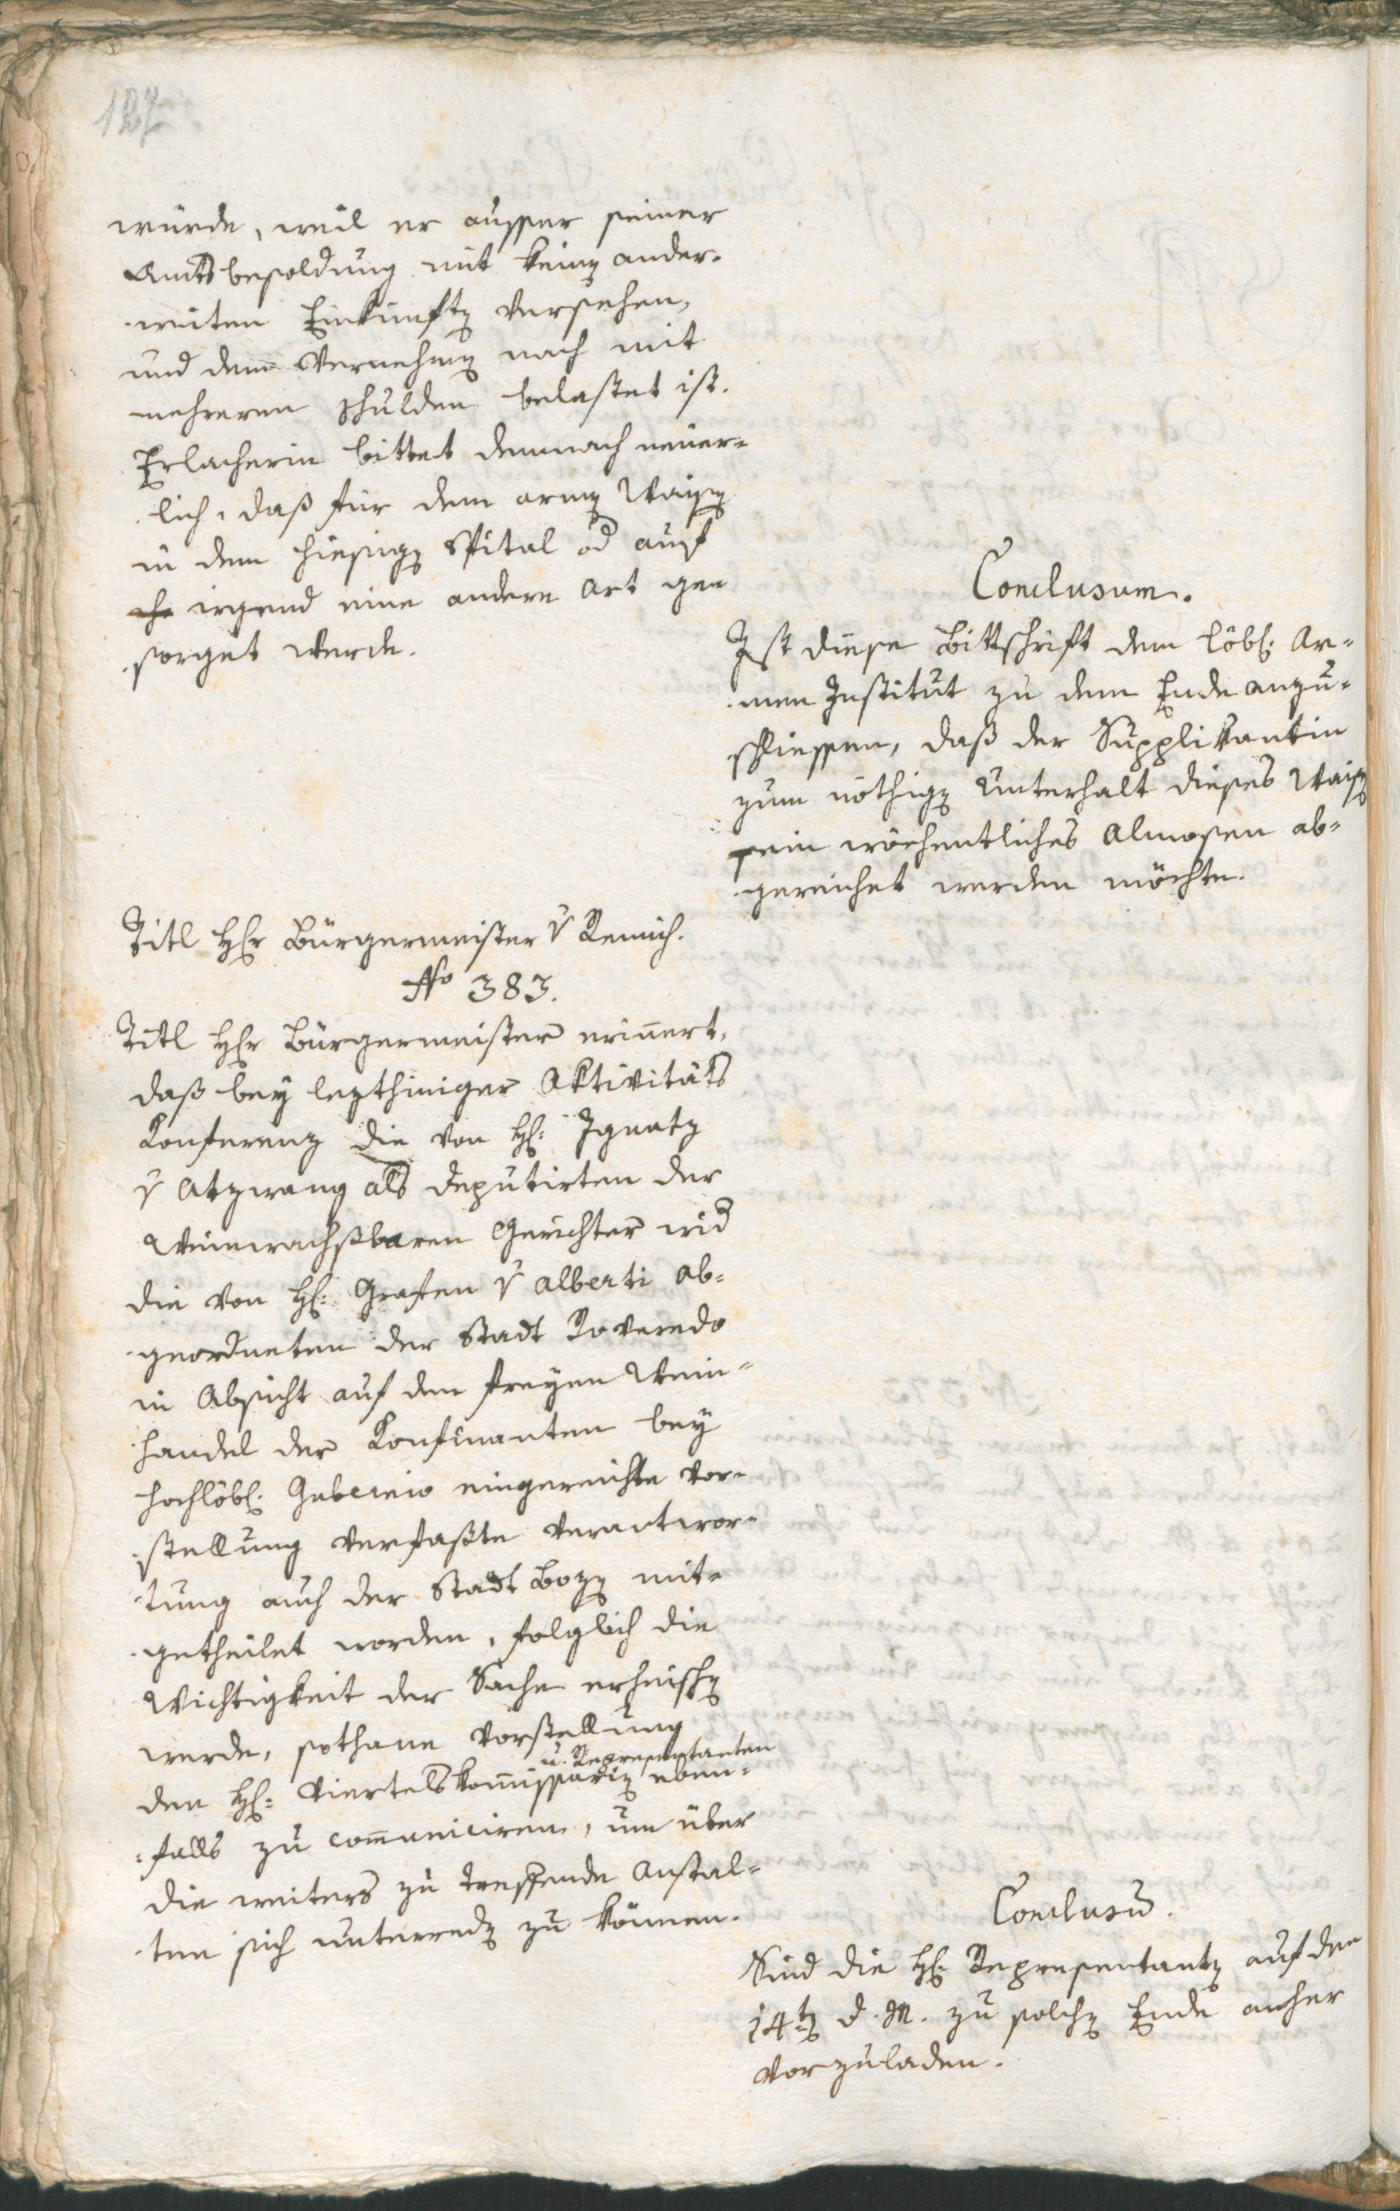 127
würde, weil er ausser seiner
Amtsbesoldung mit keinen ander-
weiten Einkünften versehen,
und dem Vernehmen nach mit
mehreren Schulden belastet ist.
Erlacherin bittet demnach neuer-
lich, daß für dem armen Waisen
in dem hiesigen Spital od auf
irgend eine andere Art ge
sorget werde.
Conclusum.
Ist diese Bittschrift dem löbl: Ar-
men Institut zu dem Ende anzu-
schliessen, daß der Supplikantin
zum nöthigen Unterhalt dieses Waisen
ein wöchentliches Almosen ab-
gereichet werden möchte.
Titl Herr Bürgermeister v Remich.
No 383.
Titl Herr Bürgermeister erinnert,
daß bey lezthiniger Aktivitäts
Konferenz die von H: Ignatz
v Atzwang als Deputirten der
Weinwachsbaren Gerichter wid
die von H: Grafen v Alberti Ab-
geordneten der Stadt Roveredo
in Absicht auf den freyen Wein-
handel der Konfinanten bey
hochlöbl: Gubernio eingereichte Vor-
stellung verfaßte Verantwor-
tung auch der Stadt Bozen mit-
getheilet worden, folglich die
Wichtigkeit der Sache erheischen
werde, sothane Vorstellung
u. Representanten
den H: Viertelskommissarien eben-
falls zu communiciren, um über
die weiters zu treffende Anstal-
ten sich unterreden zu können.
Conclusum.
Sind die H: Representanten auf den
14ten d. M. zu solchen Ende anher
vorzuladen.